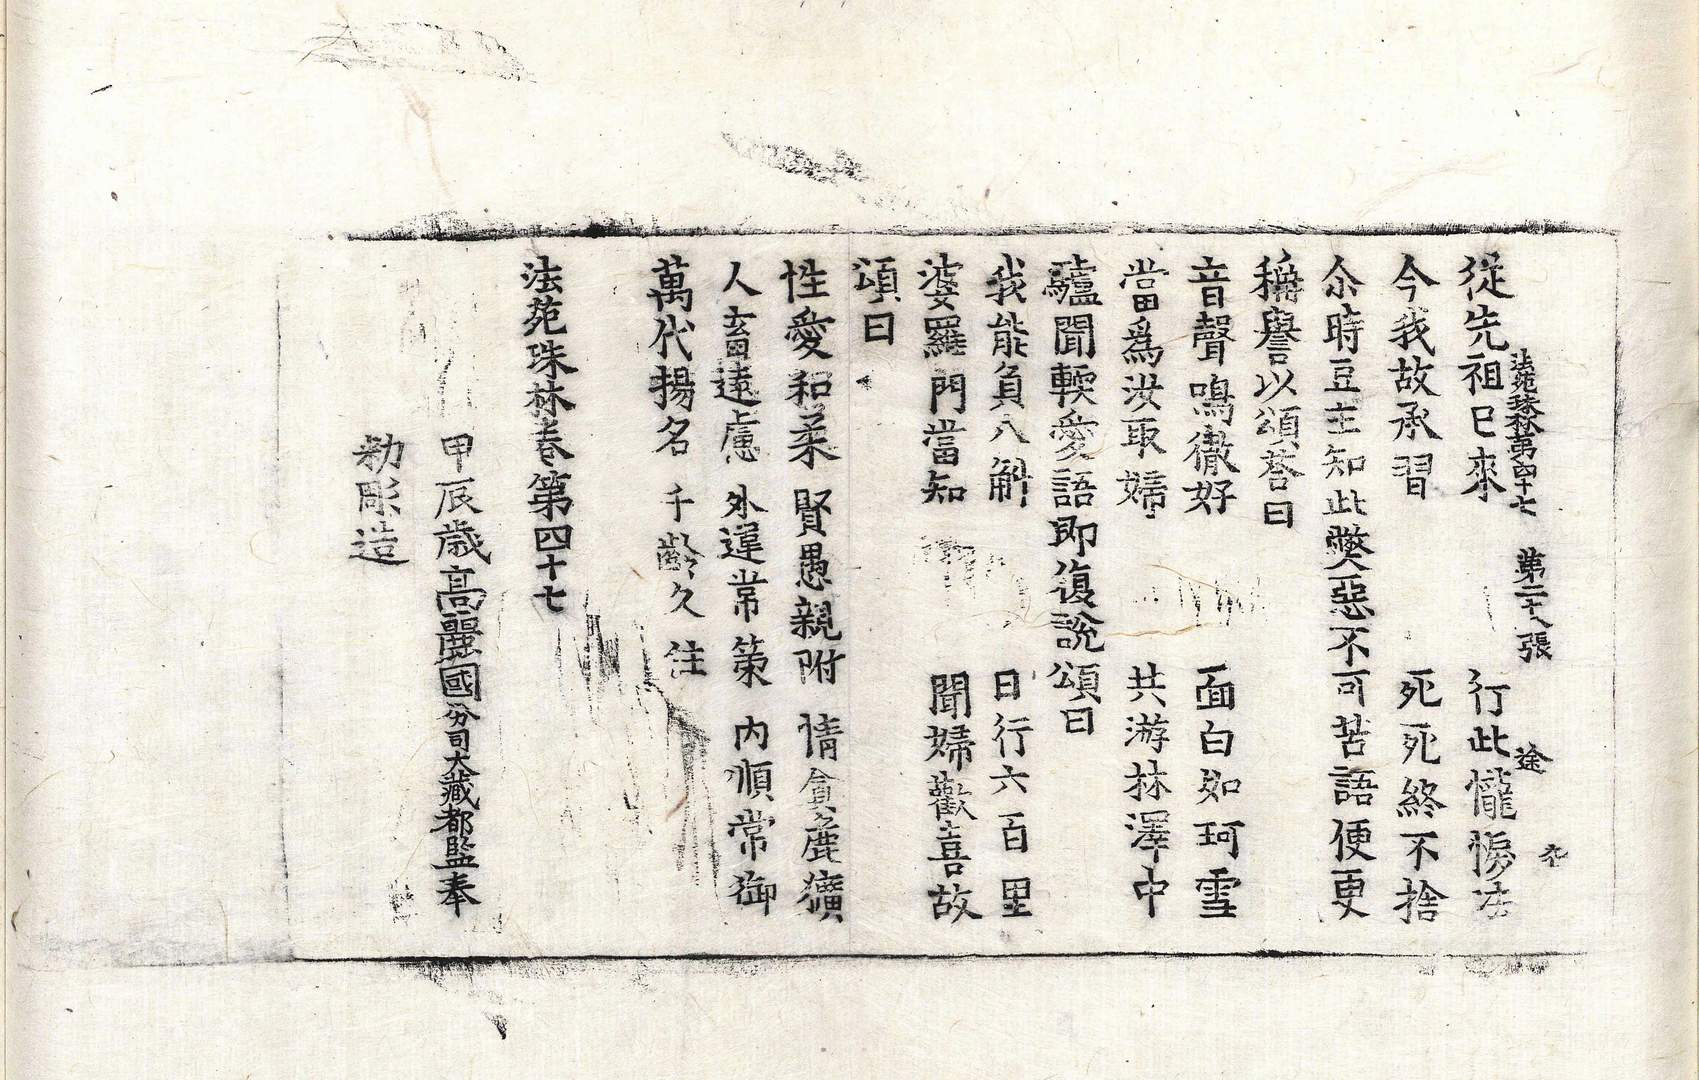 法苑珠林第四十七 第二十八張 途
從先祖已來 行此𢤱悷法
今我故承習 死死終不捨
尒時豆主知此弊惡不可苦語便更
稱譽以頌荅曰
音聲鳴徹好 面白如珂雪
當爲汝取婦 共游林澤中
驢聞輭愛語即復說頌曰
我能負八斛 日行六百里
婆羅門當知 聞婦歡喜故
頌曰
性愛和柔 賢愚親附 情貪麁獷
人畜遠慮 外違常策 內順常御
萬代揚名 千齡久住
法苑珠林卷第四十七
甲辰歳高麗國分司大藏都監奉
勅彫造